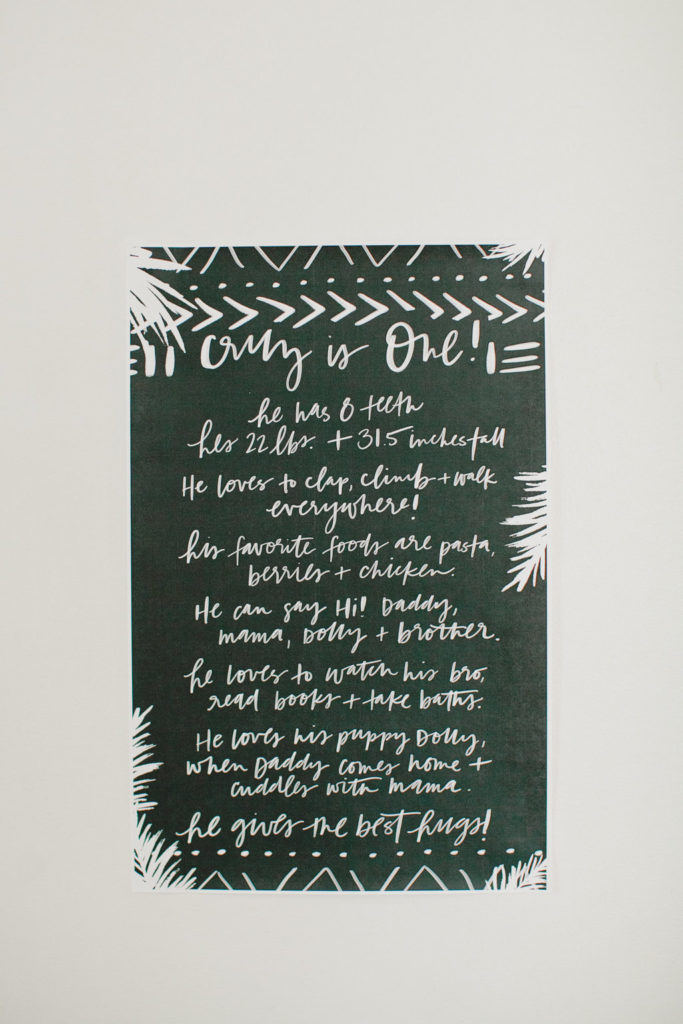 is One!
he has 8 teeth
hes 22 lbs. + 31.5 inches tall
He loves to clap, climb + walk
everywhere!
his favorite foods are pasta,
berries + chicken.
He can say Hi! Daddy,
mama, Dolly + brother.
he loves to watch his bro,
read books + take baths.
He loves his puppy Dolly,
when Daddy comes home +
cuddles with mama.
he gives the best hugs!